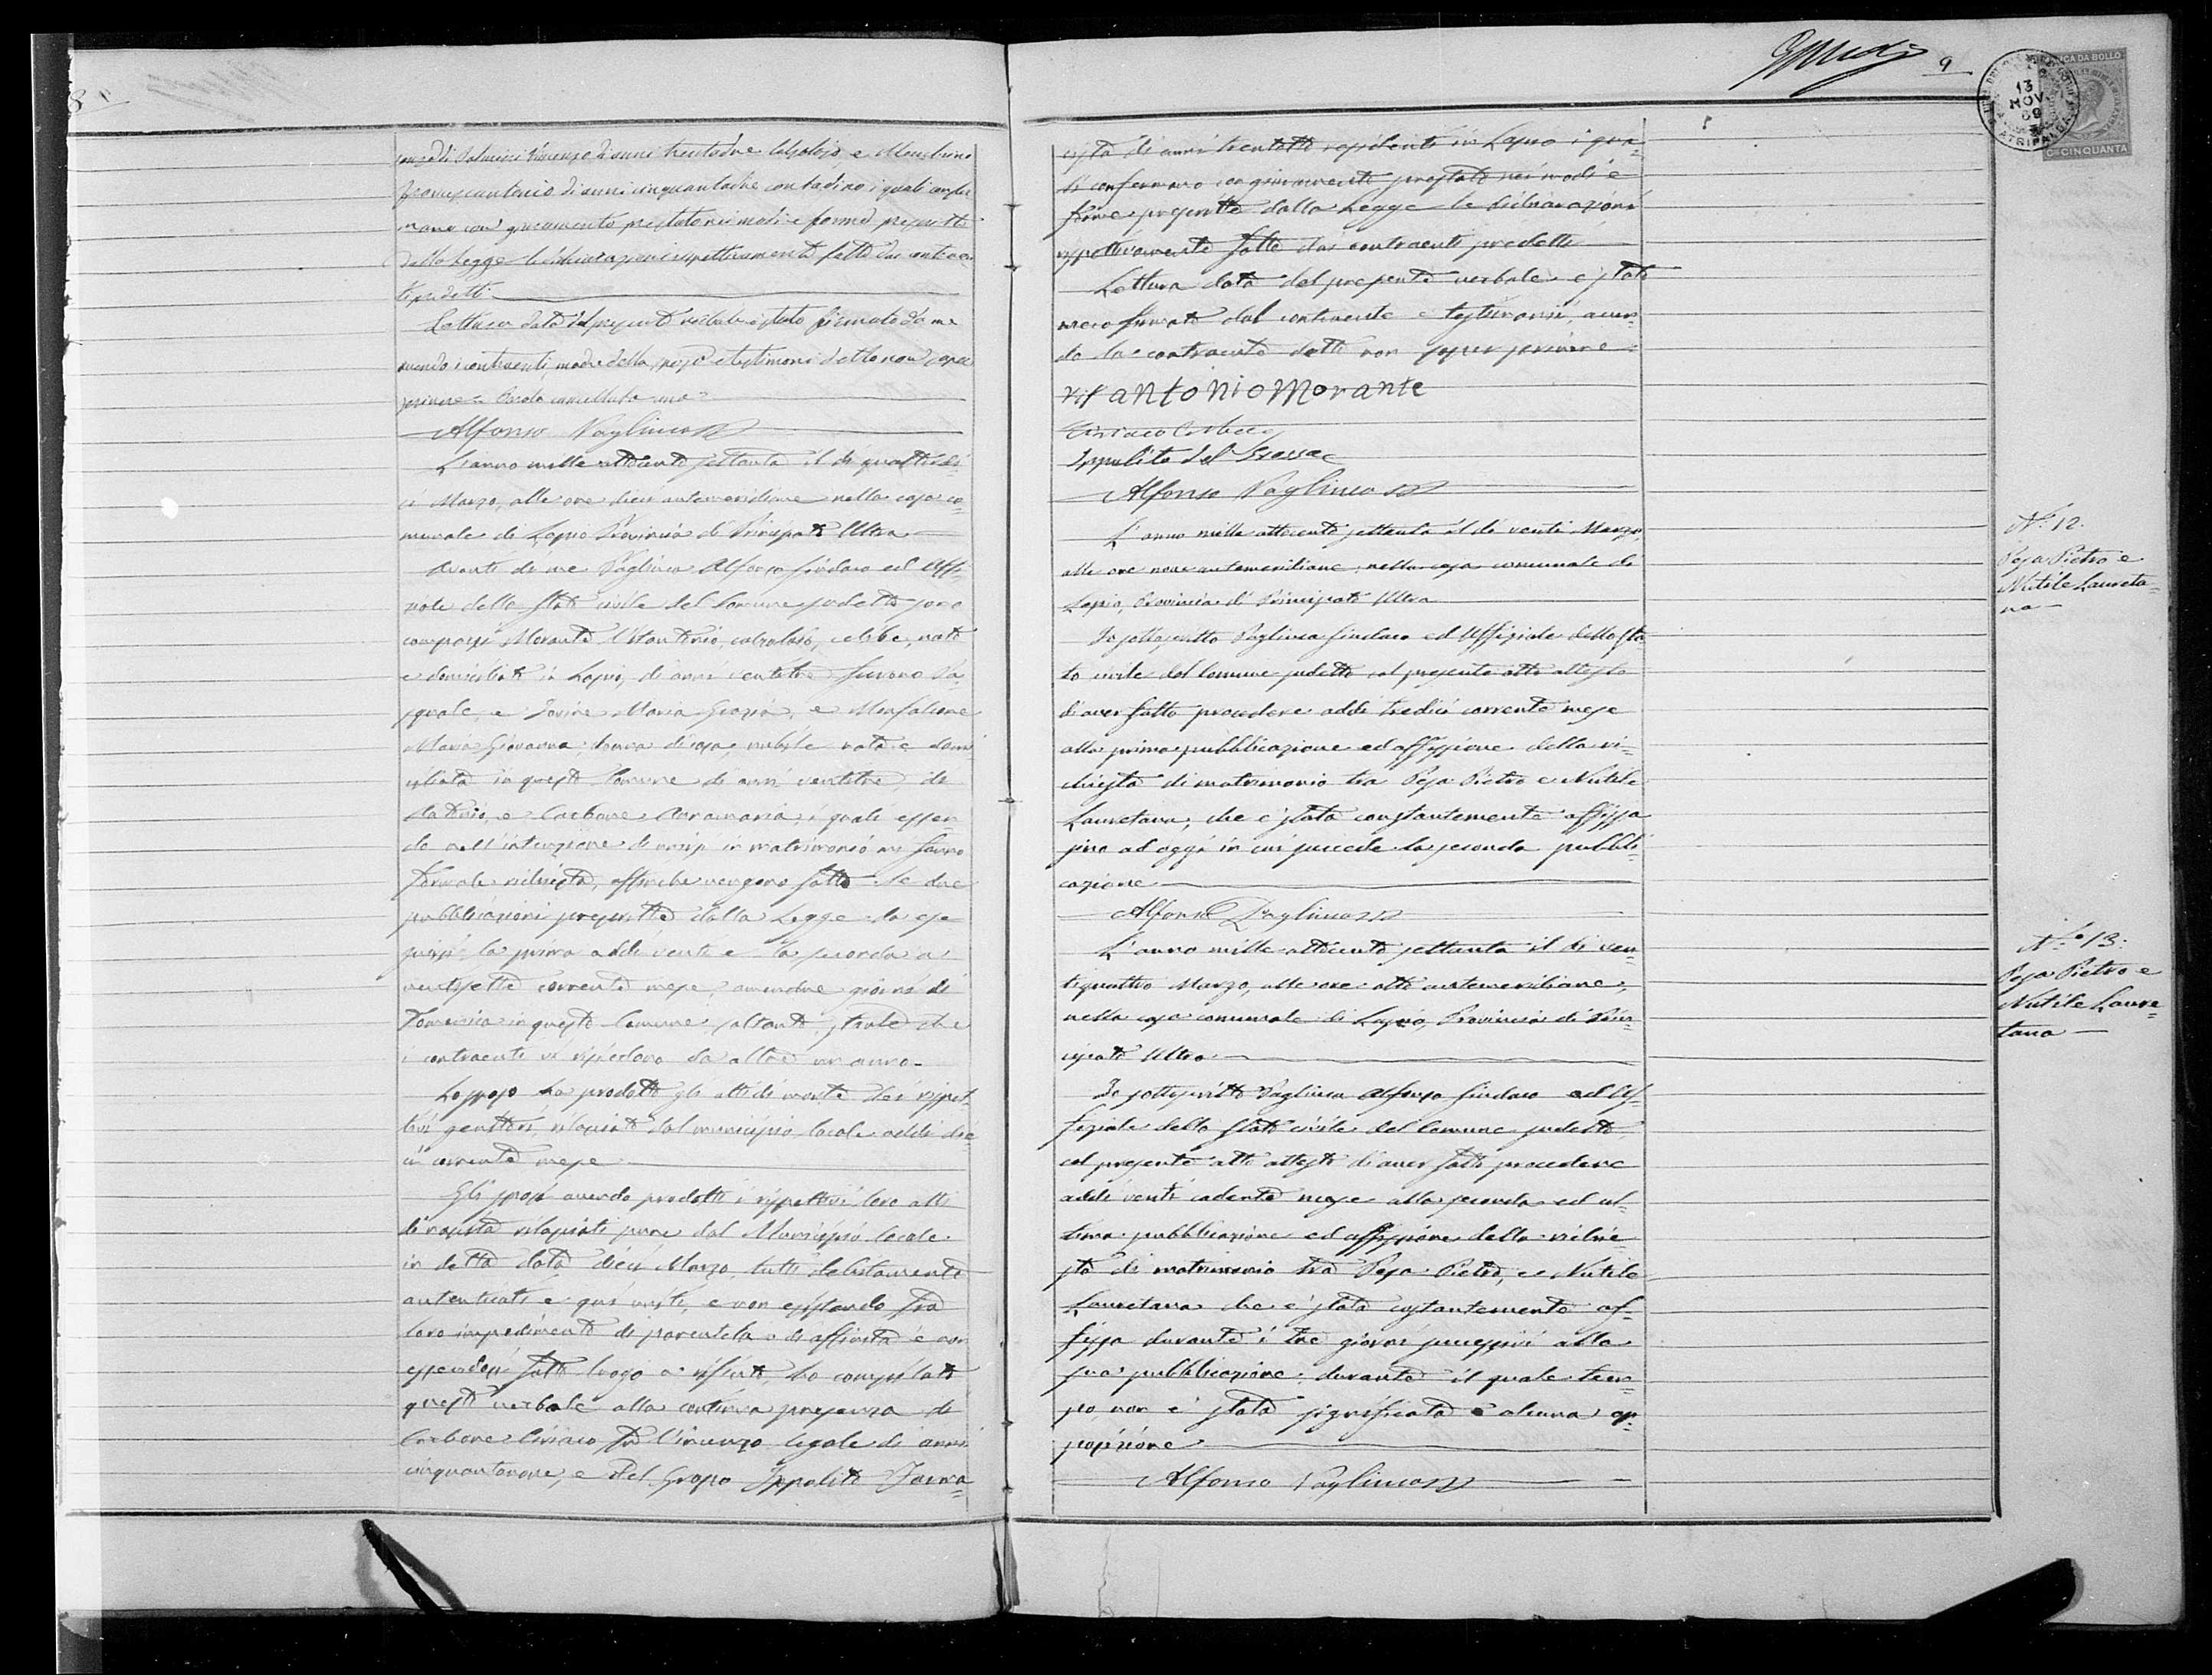 8
senza di Palmieri Vincenzo di anni trentadue calzolajo e
Francescantonio di anni cinquantadue contadino, i quali confer
mano con giuramento prestato nei modi e forme prescritte
dalla Legge le dichiarazioni rispettivamente fatte dai contraen
ti predetti
Lettura data del presente verbale è stato firmato da me
avendo i contraenti, madre della sposa e testimoni detto non sapere
scrivere
Alfonso Pagliuca
L'anno mille ottocento settanta il dì quattordi
ci Marzo, alle ore dieci antemeridiane nella casa co=
munale di Lapio Provincia di Principato Ultra
Avanti di me Pagliuca Alfonso Sindaco ed Uffi-
ziale dello Stato civile del Comune sudetto sono
comparsi Morante Vitantonio, calzolajo, celibe, nato
e domiciliato in Lapio, di anni ventotto furono Pa-
squale, e Iovine Maria Grazia, e Monfalcone
Maria Giovanna, donna di casa, nubile nata e domi
ciliata in questo Comune di anni ventitre, di
e Carbone Annamaria, i quali essen
do nell'intenzione di unirsi in matrimonio mi fanno
formale richiesta, affinche vengano fatte le due
pubblicazioni prescritte dalla Legge da ese
guirsi la prima addì venti e la seconda a'
ventisette corrente mese, amendue giorni di
Domenica in questo Comune soltanto, stante che
i contraenti vi risiedono da oltre un anno.
Lo sposo ha prodotto gli atti di morte dei rispet=
tivi genitori, rilasciati dal municipio locale addì die=
ci corrente mese
Gli sposi avendo prodotti i rispettivi loro atti
di nascita rilasciati pure dal Municipio locale
in detta data dieci Marzo, tutti debitamente
autenticati e qui uniti, e non esistendo fra
loro impedimento di parentela o di affinità e non
essendosi fatto luogo a rifiuto, ho compilato
questo verbale alla continua presenza di
Carbone Ciriaco fu Vincenzo legale di anni
cinquantanove, e Del Grosso Ippolito Farma=
9
MARCA DA BOLLO
13
NOV
69
ATRIPALDA
Cmi CINQUANTA
cista di anni trentotto residenti in Lapio i qua=
li confermano con giuramento prestato nei modi e
forme prescritte dalla Legge le dichiarazioni
rispettivamente fatte dai contraenti predetti
Lettura data del presente verbale è stato
meco firmato dal contraente e testimonii, aven=
do la contraente detto non saper scrivere
Vit antonio Morante
Ciriaco Carbone
Ippolito del Grosso
Alfonso Pagliuca
L'anno mille ottocento settanta il dì venti Marzo
alle ore nove antemeridiane, nella casa comunale di
Lapio, Provincia di Principato Ultra
Io sottoscritto Pagliuca Sindaco ed Uffiziale dello Sta
to civile del Comune sudetto, col presente atto attesto
di aver fatto procedere addì tredici corrente mese
alla prima pubblicazione ed affissione della ri=
chiesta di matrimonio tra Pesa Pietro e Nutile
Lauretana, che è stata constantemente affissa
sino ad oggi in cui succede la seconda pubbli=
cazione
Alfonso Pagliuca
L'anno mille ottocento settanta il dì ven=
tiquattro Marzo, alle ore otto antemeridiane,
nella casa comunale di Lapio, Provincia di Prin=
cipato Ultra
Io sottoscritto Pagliuca Alfonso Sindaco ed Uf=
fiziale dello Stato civile del Comune sudetto
col presente atto attesto di aver fatto procedere
addì venti cadente mese alla seconda ed ul=
tima pubblicazione ed affissione della richie=
sta di matrimonio tra Pesa Pietro, e Nutile
Lauretana che è stata costantemente af=
fissa durante i tre giorni successivi alla
sua pubblicazione, durante il quale tem=
po, non è stata significata alcuna op=
posizione
Alfonso Pagliuca
N.° 12.
Pesa Pietro e
Nutile Laureta=
na
N.° 13.
Pesa Pietro e
Nutile Laure=
tana